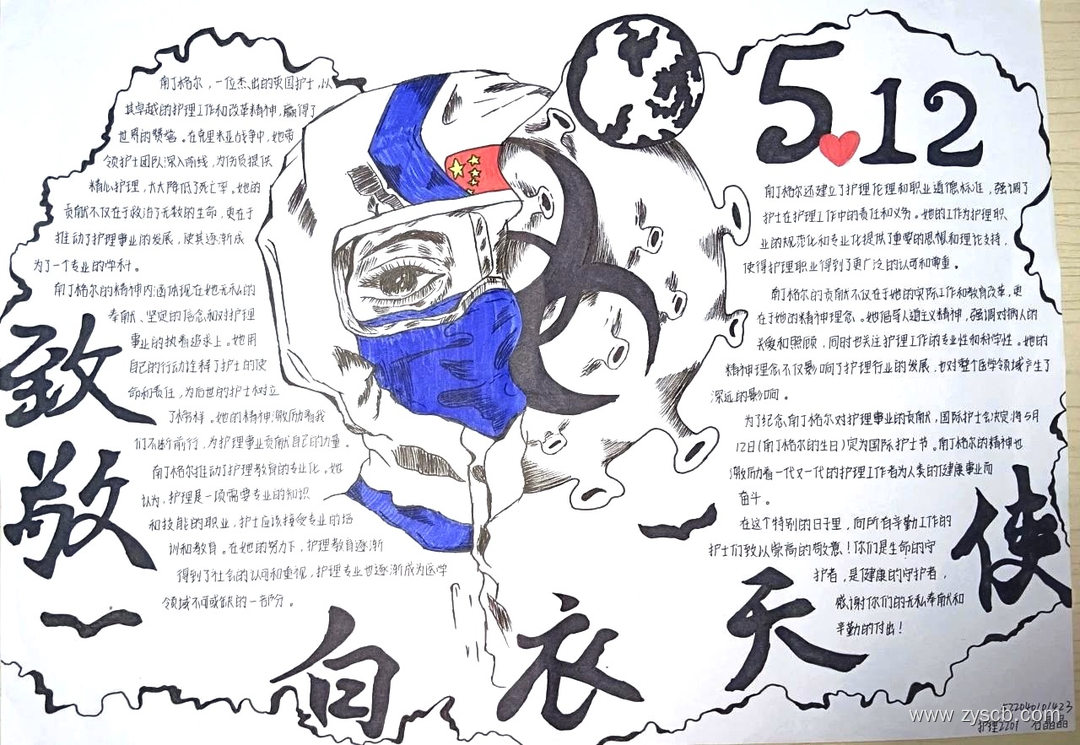 5.12
致敬一白衣天使一
南丁格尔，一位杰出的英国护士，以
其卓越的护理工作和改革精神，赢得了
世界的赞誉。在克里米亚战争中，她带
领护士团队深入前线，为伤员提供
精心护理，大大降低了死亡率。她的
贡献不仅在于救治了无数的生命，更在于
推动了护理事业的发展，使其逐渐成
为了一个专业的学科。
南丁格尔的精神内涵体现在她无私的
奉献、坚定的信念和对护理
事业的执着追求上。她用
自己的行动诠释了护士的使
命和责任，为后世的护士树立
了榜样。她的精神激励着我
们不断前行，为护理事业贡献自己的力量。
南丁格尔推动了护理教育的专业化。她
认为，护理是一项需要专业的知识
和技能的职业，护士应该接受专业的培
训和教育。在她的努力下，护理教育逐渐
得到了社会的认可和重视，护理专业也逐渐成为医学
领域不可或缺的一部分。
南丁格尔还建立了护理伦理和职业道德标准，强调了
护士在护理工作中的责任和义务。她的工作为护理职
业的规范化和专业化提供了重要的思想和理论支持，
使得护理职业得到了更广泛的认可和尊重。
南丁格尔的贡献不仅在于她的实际工作和教育改革，更
在于她的精神理念。她倡导人道主义精神，强调对病人的
关爱和照顾，同时也关注护理工作的专业性和科学性。她的
精神理念不仅影响了护理行业的发展，也对整个医学领域产生了
深远的影响。
为了纪念南丁格尔对护理事业的贡献，国际护士会决定将5月
12日（南丁格尔的生日）定为国际护士节。南丁格尔的精神也
激励着一代又一代的护理工作者为人类的健康事业而
奋斗。
在这个特别的日子里，向所有辛勤工作的
护士们致以崇高的敬意！你们是生命的守
护者，是健康的守护者，
感谢你们的无私奉献和
辛勤的付出！
护理2201
www.zyscb.com